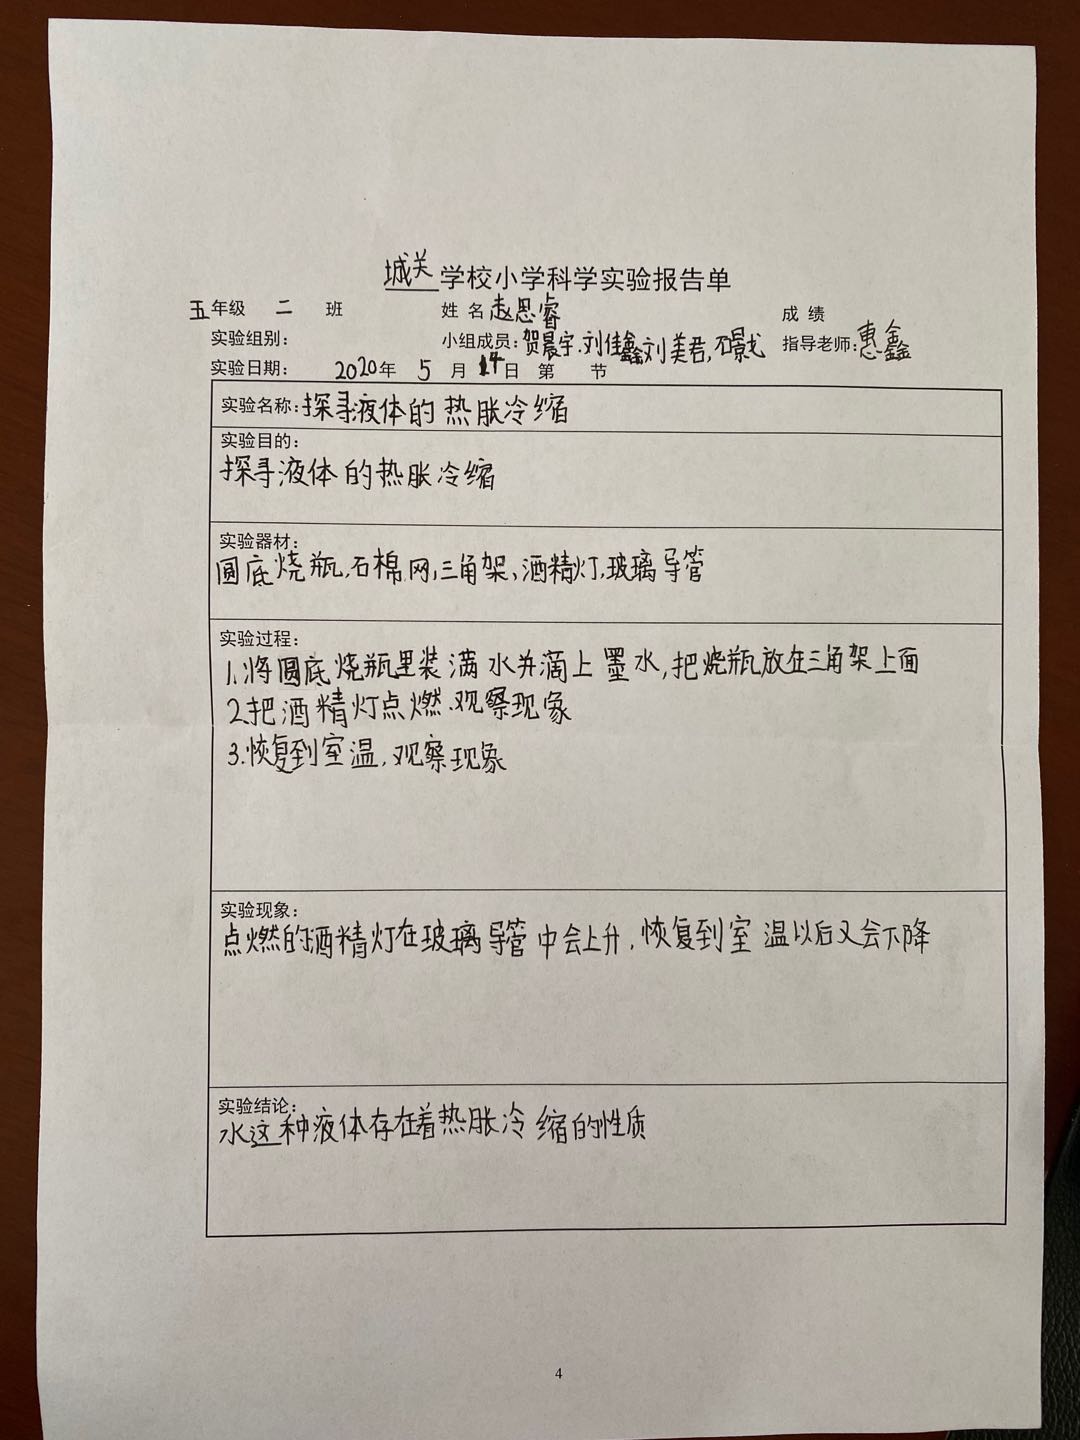 城关学校小学科学实验报告单
五年级 二 班 姓名 赵思睿 成绩
实验组别： 小组成员：贺晨宇.刘佳鑫刘美君,石景戈 指导老师：惠鑫
实验日期： 2020年 5 月 14日 第 节
实验名称：探寻液体的热胀冷缩
实验目的：
探寻液体的热胀冷缩
实验器材：
圆底烧瓶,石棉网,三角架、酒精灯,玻璃导管
实验过程：
1.将圆底烧瓶里装满水并滴上墨水,把烧瓶放在三角架上面
2.把酒精灯点燃.观察现象
3.恢复到室温,观察现象
实验现象：
点燃的酒精灯在玻璃导管中会上升,恢复到室温以后又会下降
实验结论：
水这种液体存在着热胀冷缩的性质
4